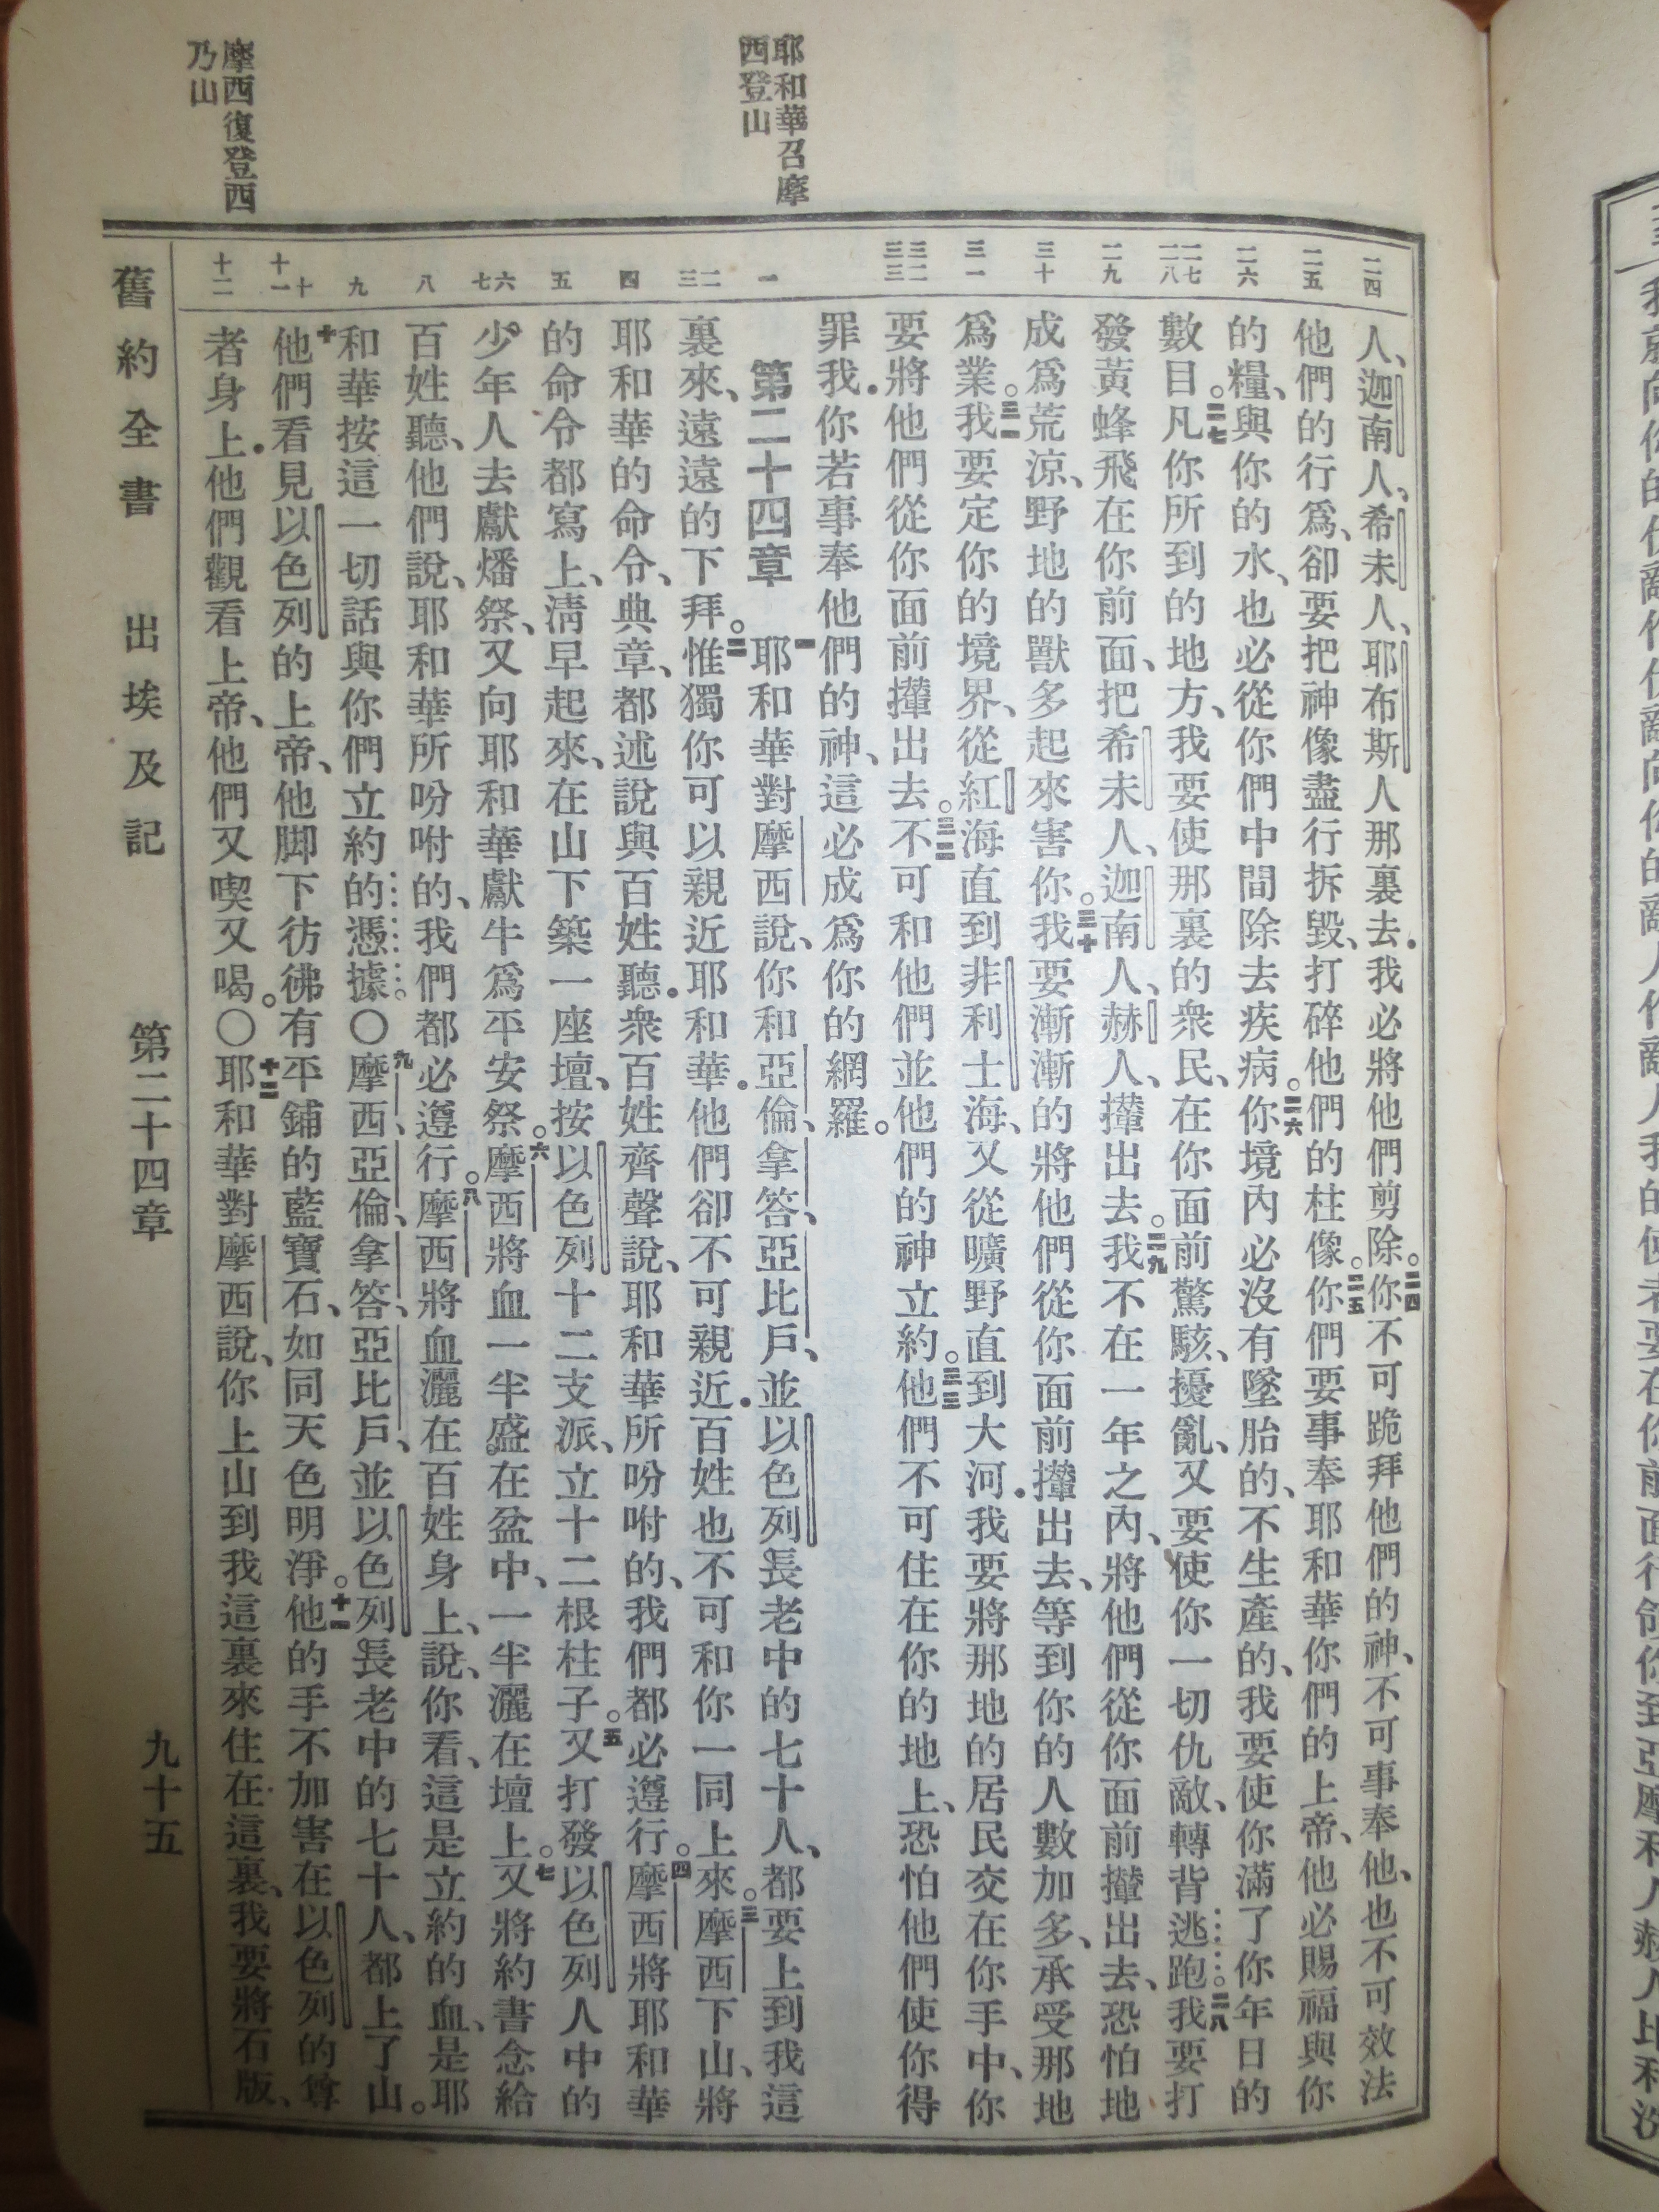 耶和華召摩
西登山
摩西復登西
乃山
二四
二五
二六
二七
二八
二九
三十
三一
三二
三三
一
二
三
四
五
六
七
八
九
十
十一
十二
人、迦南人、希未人、耶布斯人那裏去.我必將他們剪除。二四你不可跪拜他們的神、不可事奉他、也不可效法
他們的行爲、卻要把神像盡行拆毀、打碎他們的柱像。二五你們要事奉耶和華你們的上帝、他必賜福與你
的糧、與你的水、也必從你們中間除去疾病。二六你境內必沒有墜胎的、不生產的、我要使你滿了你年日的
數目。二七凡你所到的地方、我要使那裏的衆民、在你面前驚駭、擾亂、又要使你一切仇敵、轉背逃跑。二八我要打
發黃蜂飛在你前面、把希未人、迦南人、赫人、攆出去。二九我不在一年之內、將他們從你面前攆出去、恐怕地
成爲荒涼、野地的獸多起來害你。三十我要漸漸的將他們從你面前攆出去、等到你的人數加多、承受那地
爲業。三一我要定你的境界、從紅海直到非利士海、又從曠野直到大河.我要將那地的居民交在你手中、你
要將他們從你面前攆出去。三二不可和他們並他們的神立約。三三他們不可住在你的地上、恐怕他們使你得
罪我.你若事奉他們的神、這必成爲你的網羅。
第二十四章　一耶和華對摩西說、你和亞倫、拿答、亞比戶、並以色列長老中的七十人、都要上到我這
裏來、遠遠的下拜。二惟獨你可以親近耶和華.他們卻不可親近.百姓也不可和你一同上來。三摩西下山、將
耶和華的命令、典章、都述說與百姓聽.衆百姓齊聲說、耶和華所吩咐的、我們都必遵行。四摩西將耶和華
的命令都寫上、清早起來、在山下築一座壇、按以色列十二支派、立十二根柱子。五又打發以色列人中的
少年人去獻燔祭、又向耶和華獻牛爲平安祭。六摩西將血一半盛在盆中、一半灑在壇上。七又將約書念給
百姓聽、他們說、耶和華所吩咐的、我們都必遵行。八摩西將血灑在百姓身上、說、你看、這是立約的血、是耶
和華按這一切話與你們立約的憑據。〇九摩西、亞倫、拿答、亞比戶、並以色列長老中的七十人、都上了山。
十他們看見以色列的上帝、他脚下彷彿有平鋪的藍寶石、如同天色明淨。十一他的手不加害在以色列的尊
者身上.他們觀看上帝、他們又喫又喝。〇十二耶和華對摩西說、你上山到我這裏來住在這裏、我要將石版、
舊約全書　出埃及記　第二十四章　九十五